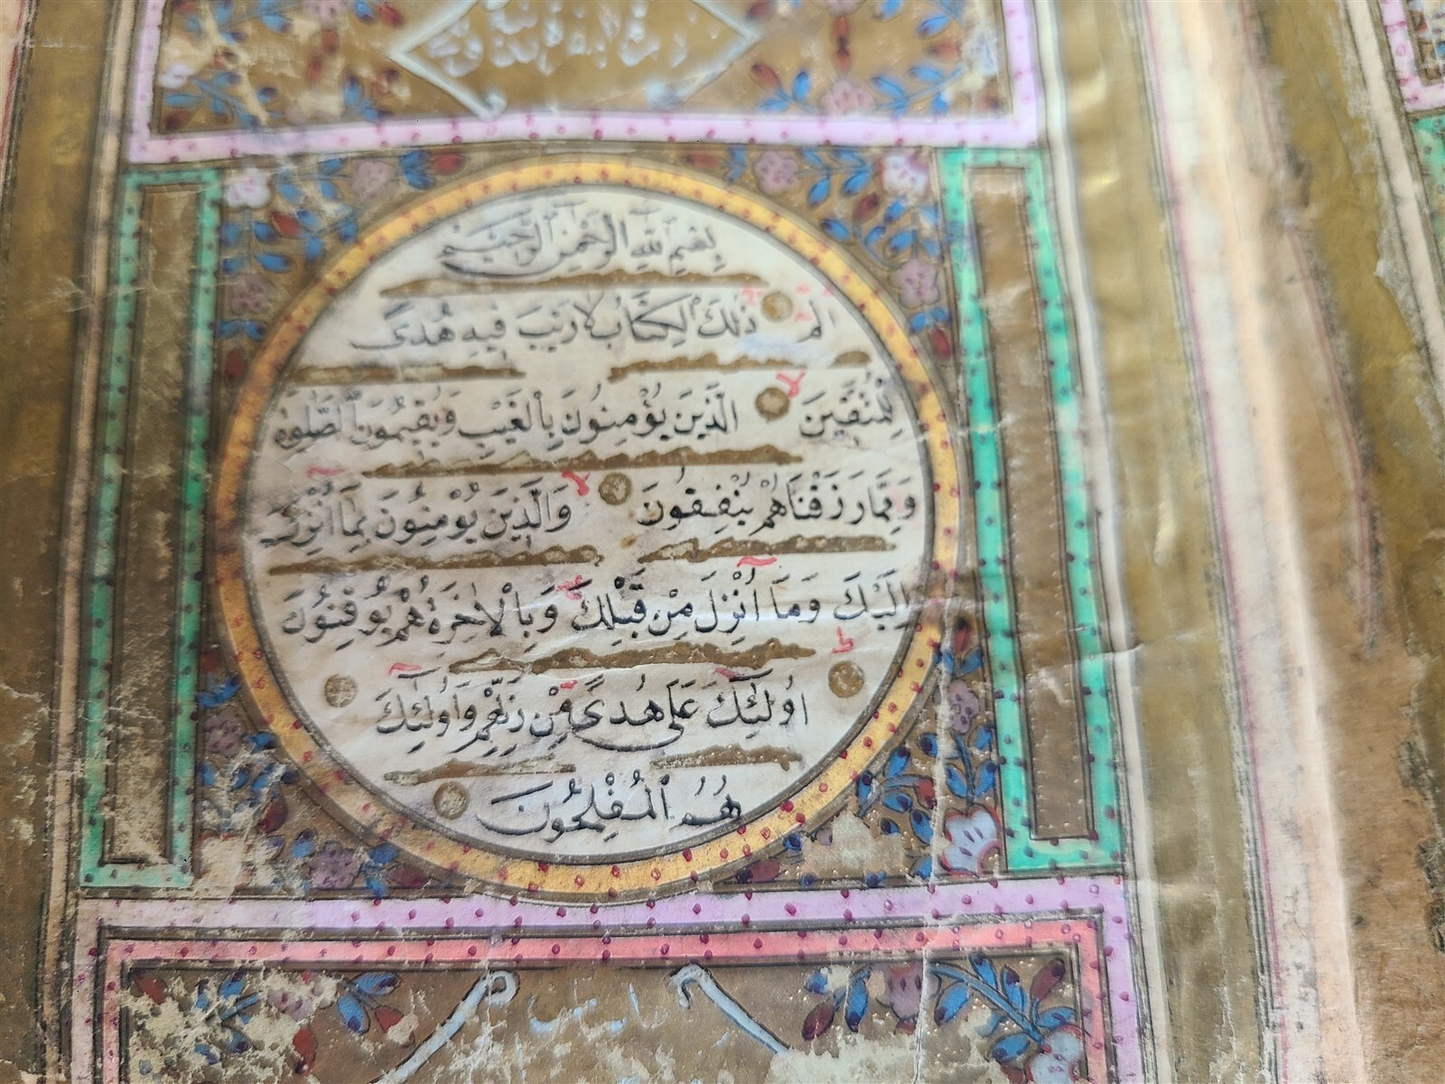 بِسْمِ اللّٰهِ الرَّحْمٰنِ الرَّحِيْمِ
الٓمٓ ذٰلِكَ الْكِتَابُ لَا رَيْبَ فِيهِ هُدًى
لِلْمُتَّقِينَ لا الَّذِينَ يُؤْمِنُونَ بِالْغَيْبِ وَيُقِيمُونَ الصَّلٰوةَ
وَمِمَّا رَزَقْنَاهُمْ يُنْفِقُونَ لا وَالَّذِينَ يُؤْمِنُونَ بِمَٓا اُنْزِلَ
اِلَيْكَ وَمَٓا اُنْزِلَ مِنْ قَبْلِكَ وَبِالْاٰخِرَةِ هُمْ يُوقِنُونَ ط
اُولٰٓئِكَ عَلٰى هُدًى مِنْ رَبِّهِمْ وَاُولٰٓئِكَ
هُمُ الْمُفْلِحُونَ